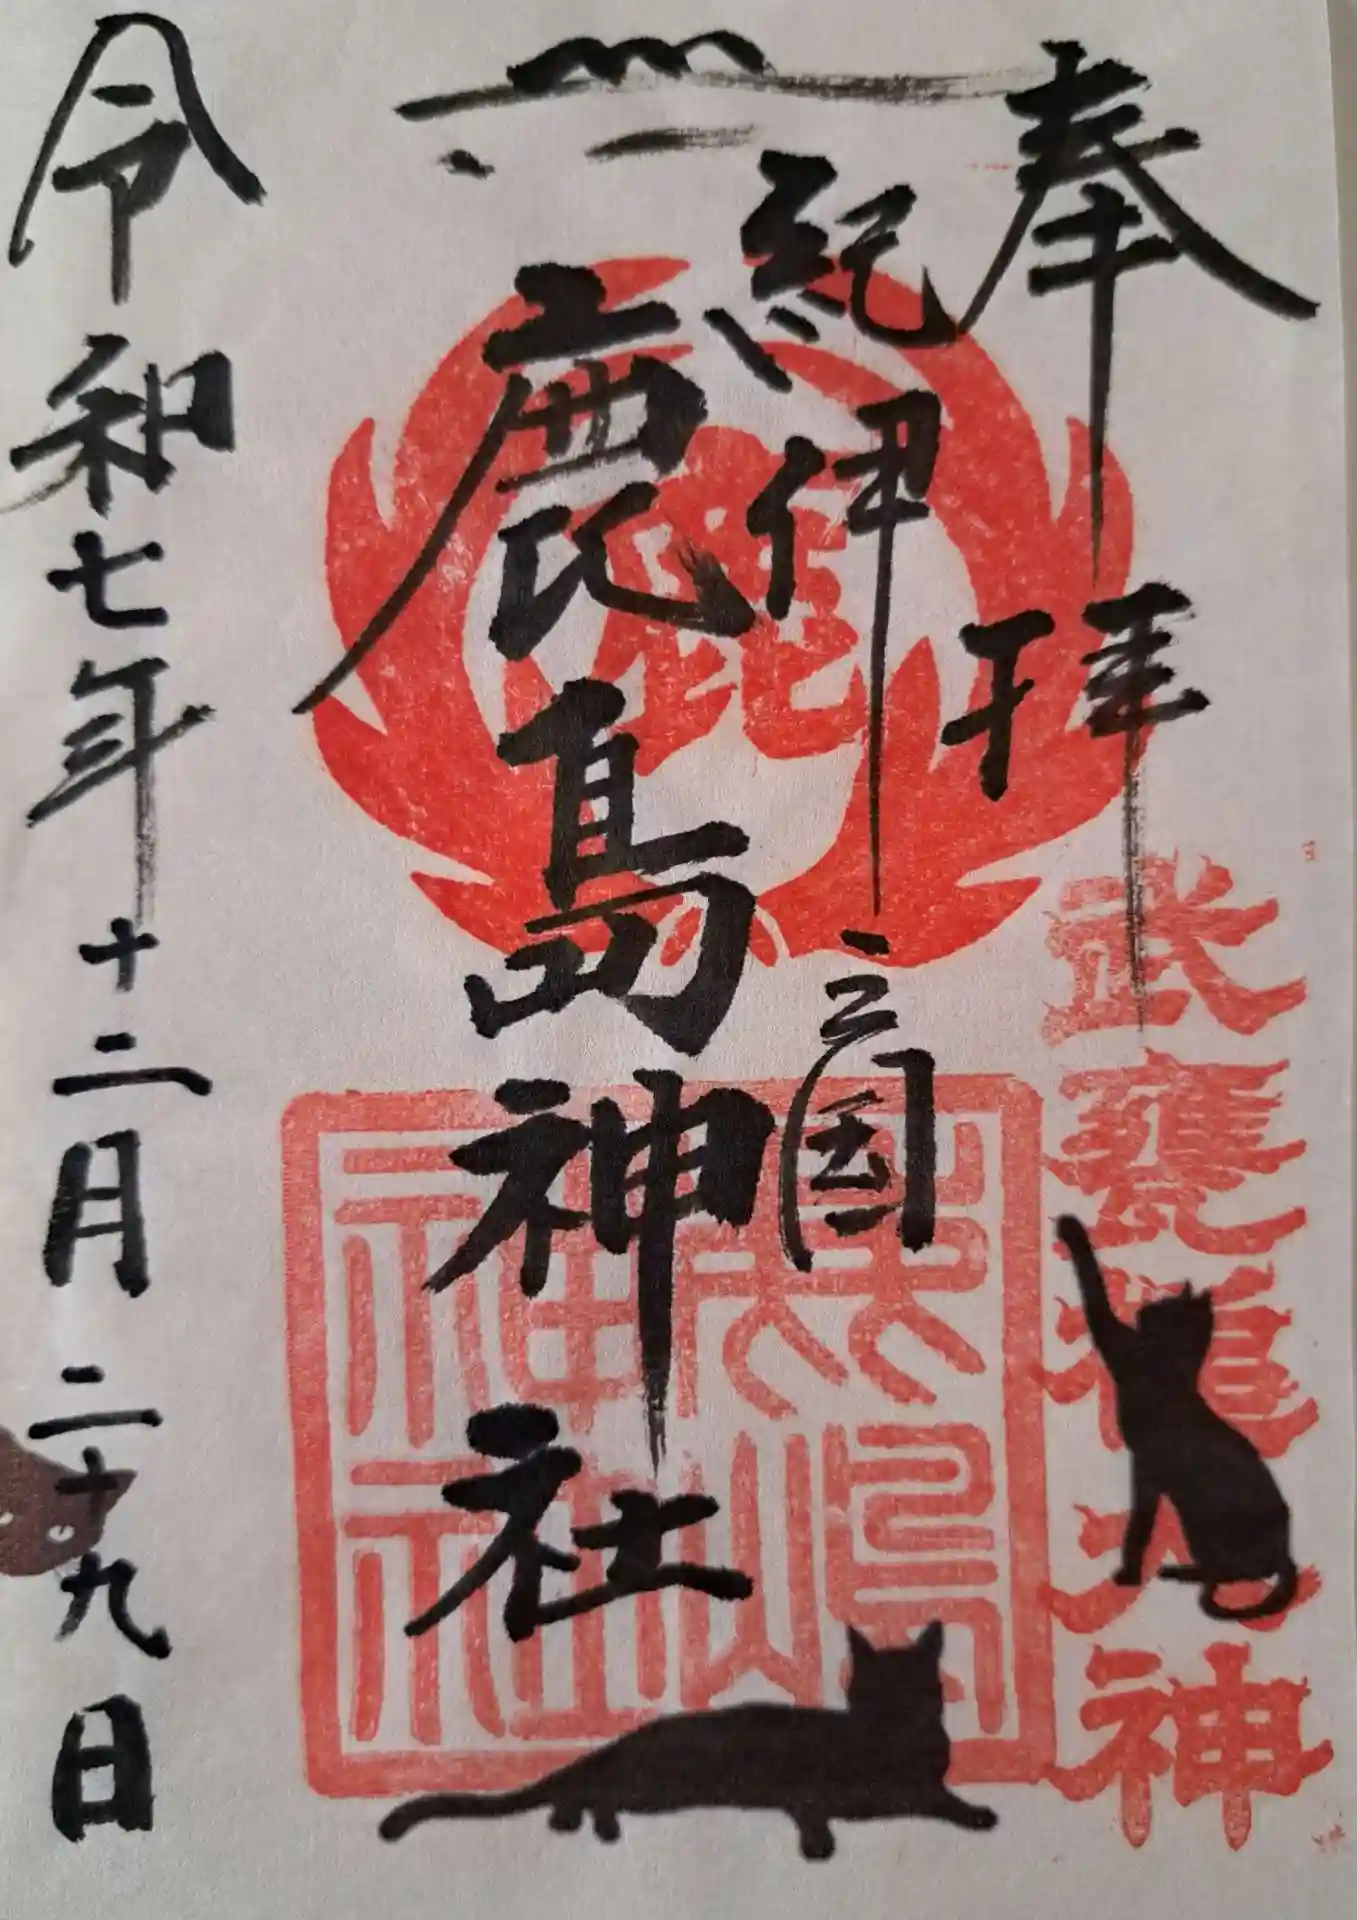 奉拝
武甕槌大神
紀伊之国
鹿島神社
鹿
鹿嶋
神社
令和七年十二月二十九日